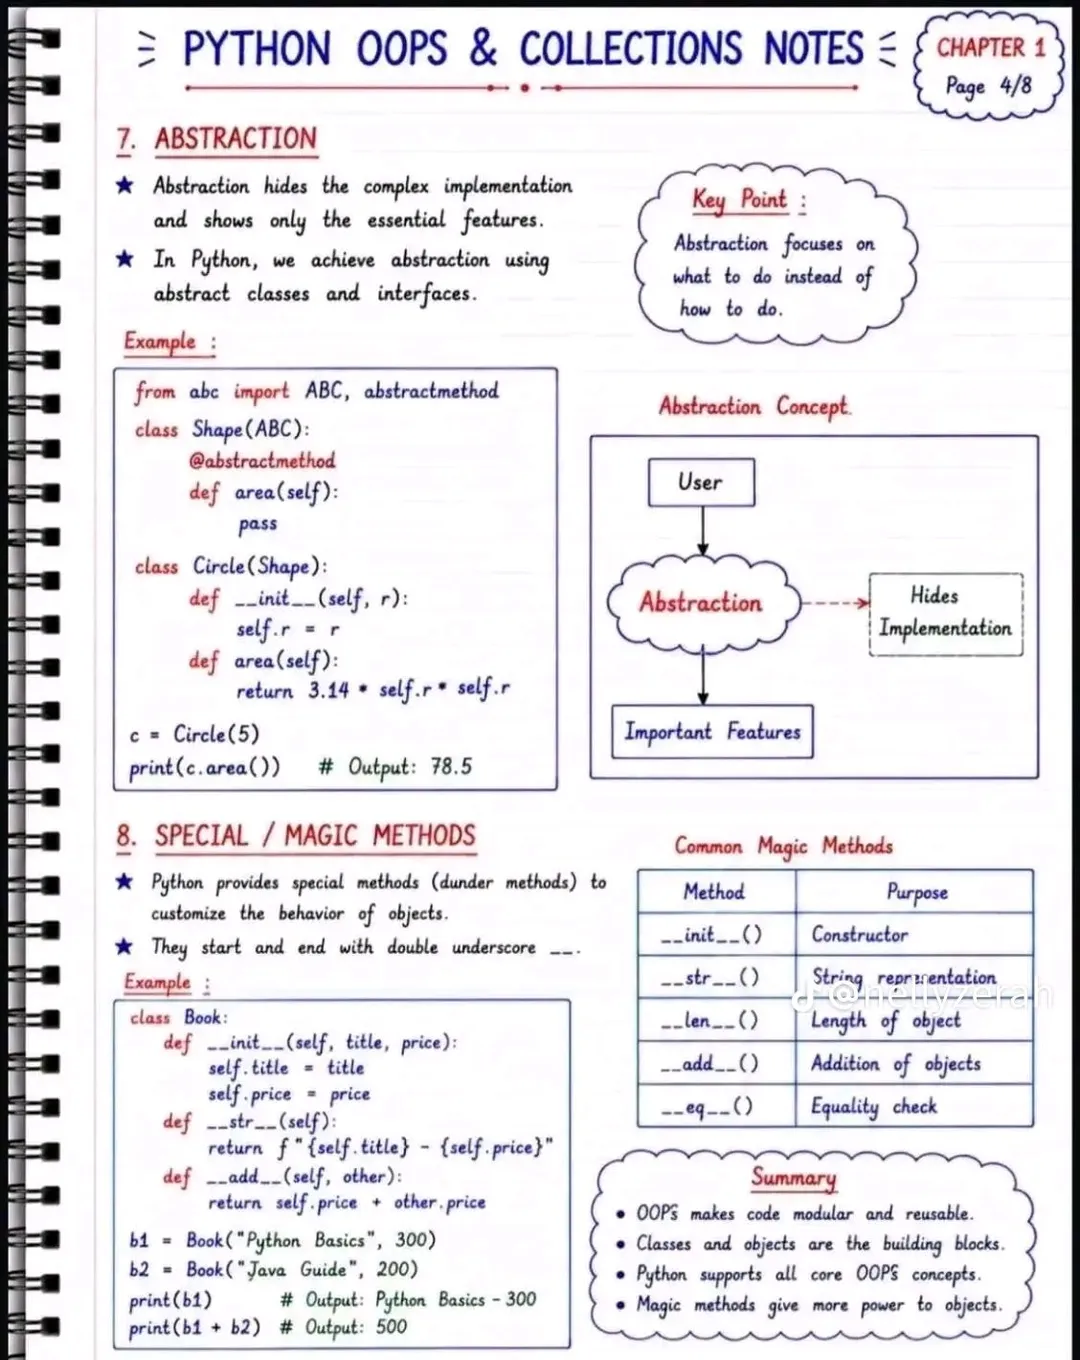 PYTHON OOPS & COLLECTIONS NOTES
CHAPTER 1
Page 4/8
7. ABSTRACTION
★ Abstraction hides the complex implementation
and shows only the essential features.
★ In Python, we achieve abstraction using
abstract classes and interfaces.
Key Point :
Abstraction focuses on
what to do instead of
how to do.
Example :
from abc import ABC, abstractmethod
class Shape(ABC):
@abstractmethod
def area(self):
pass
class Circle(Shape):
def __init__(self, r):
self.r = r
def area(self):
return 3.14 * self.r * self.r
c = Circle(5)
print(c.area()) # Output: 78.5
Abstraction Concept.
User
Abstraction
Hides
Implementation
Important Features
8. SPECIAL / MAGIC METHODS
★ Python provides special methods (dunder methods) to
customize the behavior of objects.
★ They start and end with double underscore __.
Example :
class Book:
def __init__(self, title, price):
self.title = title
self.price = price
def __str__(self):
return f"{self.title} - {self.price}"
def __add__(self, other):
return self.price + other.price
b1 = Book("Python Basics", 300)
b2 = Book("Java Guide", 200)
print(b1) # Output: Python Basics - 300
print(b1 + b2) # Output: 500
Common Magic Methods
Method Purpose
__init__() Constructor
__str__() String
@nellyzerah
__len__() Length of object
__add__() Addition of objects
__eq__() Equality check
Summary
• OOPs makes code modular and reusable.
• Classes and objects are the building blocks.
• Python supports all core OOPs concepts.
• Magic methods give more power to objects.